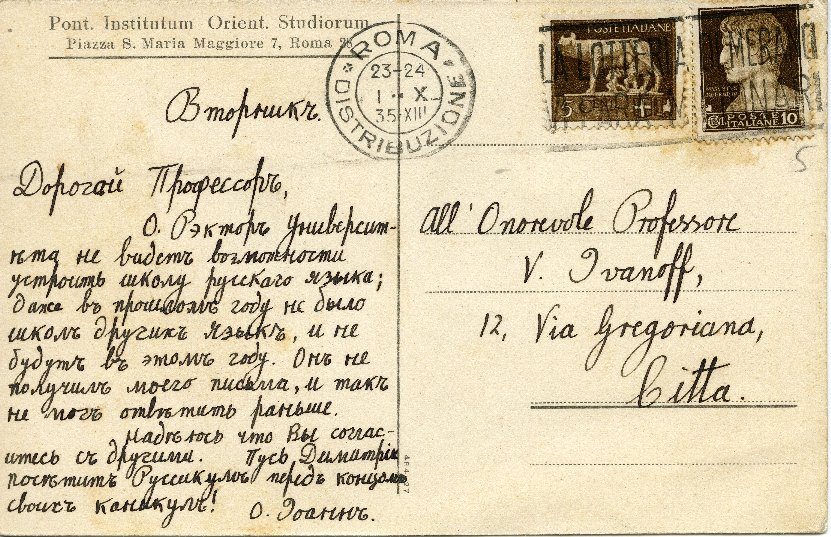 Pont. Institutum Orient. Studiorum
Piazza S. Maria Maggiore 7, Roma 28
Вторникъ.
Дорогай Профессоръ,
О. Рэкторъ Университ-
ѣта не видетъ возможности
устроить школу русскаго языка;
Даже въ прошломъ году не было
школъ другихъ языкъ, и не
будутъ въ этомъ году. Онъ не
получилъ моего письма, и такъ
не могъ отвѣтить раньше.
Надѣюсь что Вы соглас-
итесь съ другими. Пусь Димитрій
посѣтитъ Руссикумъ передъ концомъ
своихъ каникулъ!
О. Іоаннъ.
ROMA
DISTRIBUZIONE
23-24
1 X
35 XIII
POSTE ITALIANE
5
POSTE
ITALIANE 10
LA LOTTERIA
5
All' Onorevole Professore
V. Ivanoff,
12, Via Gregoriana,
Citta.